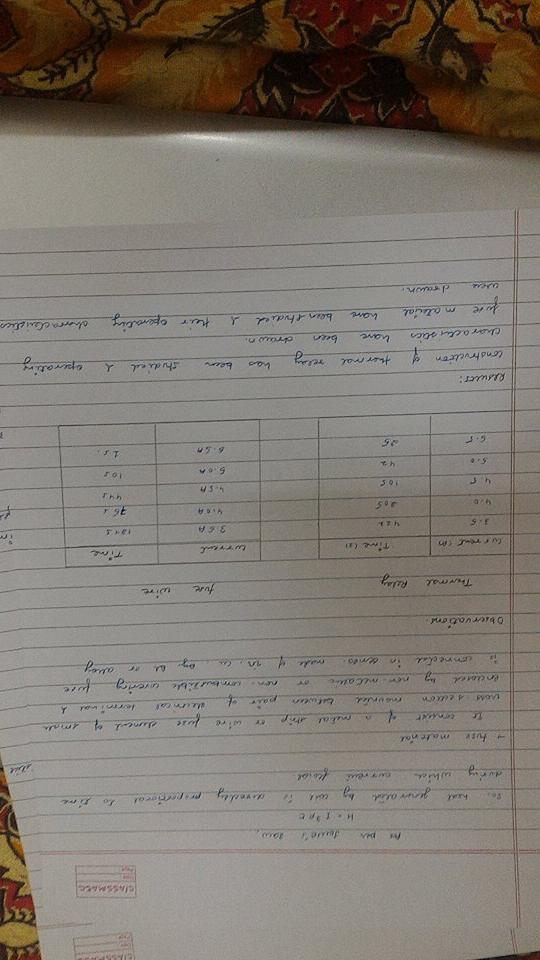 CLASSMATE
Date
Page
As per Joule's law,
H = I²Rt
So, heat generated by coil is directly proportional to time
during which current flows
→ fuse material
It consist of a metal strip or wire fuse element of small
cross section mounted between pair of electrical terminal &
enclosed by non-metallic or non-combustible covering fuse
is connected in series. made of Zn, Cu, Ag, Al or alloy
Observations:
Thermal Relay fuse wire
Current (A) Time (s) Current Time
3.5 42s 3.5A 134s
4.0 20s 4.0A 76s
4.5 10s 4.5A 44s
5.0 4s 5.0A 10s
5.5 2s 5.5A 1s.
Results:
Construction of thermal relay has been studied & operating
characteristics have been drawn.
fuse material have been studied & their operating characteristics
were drawn.